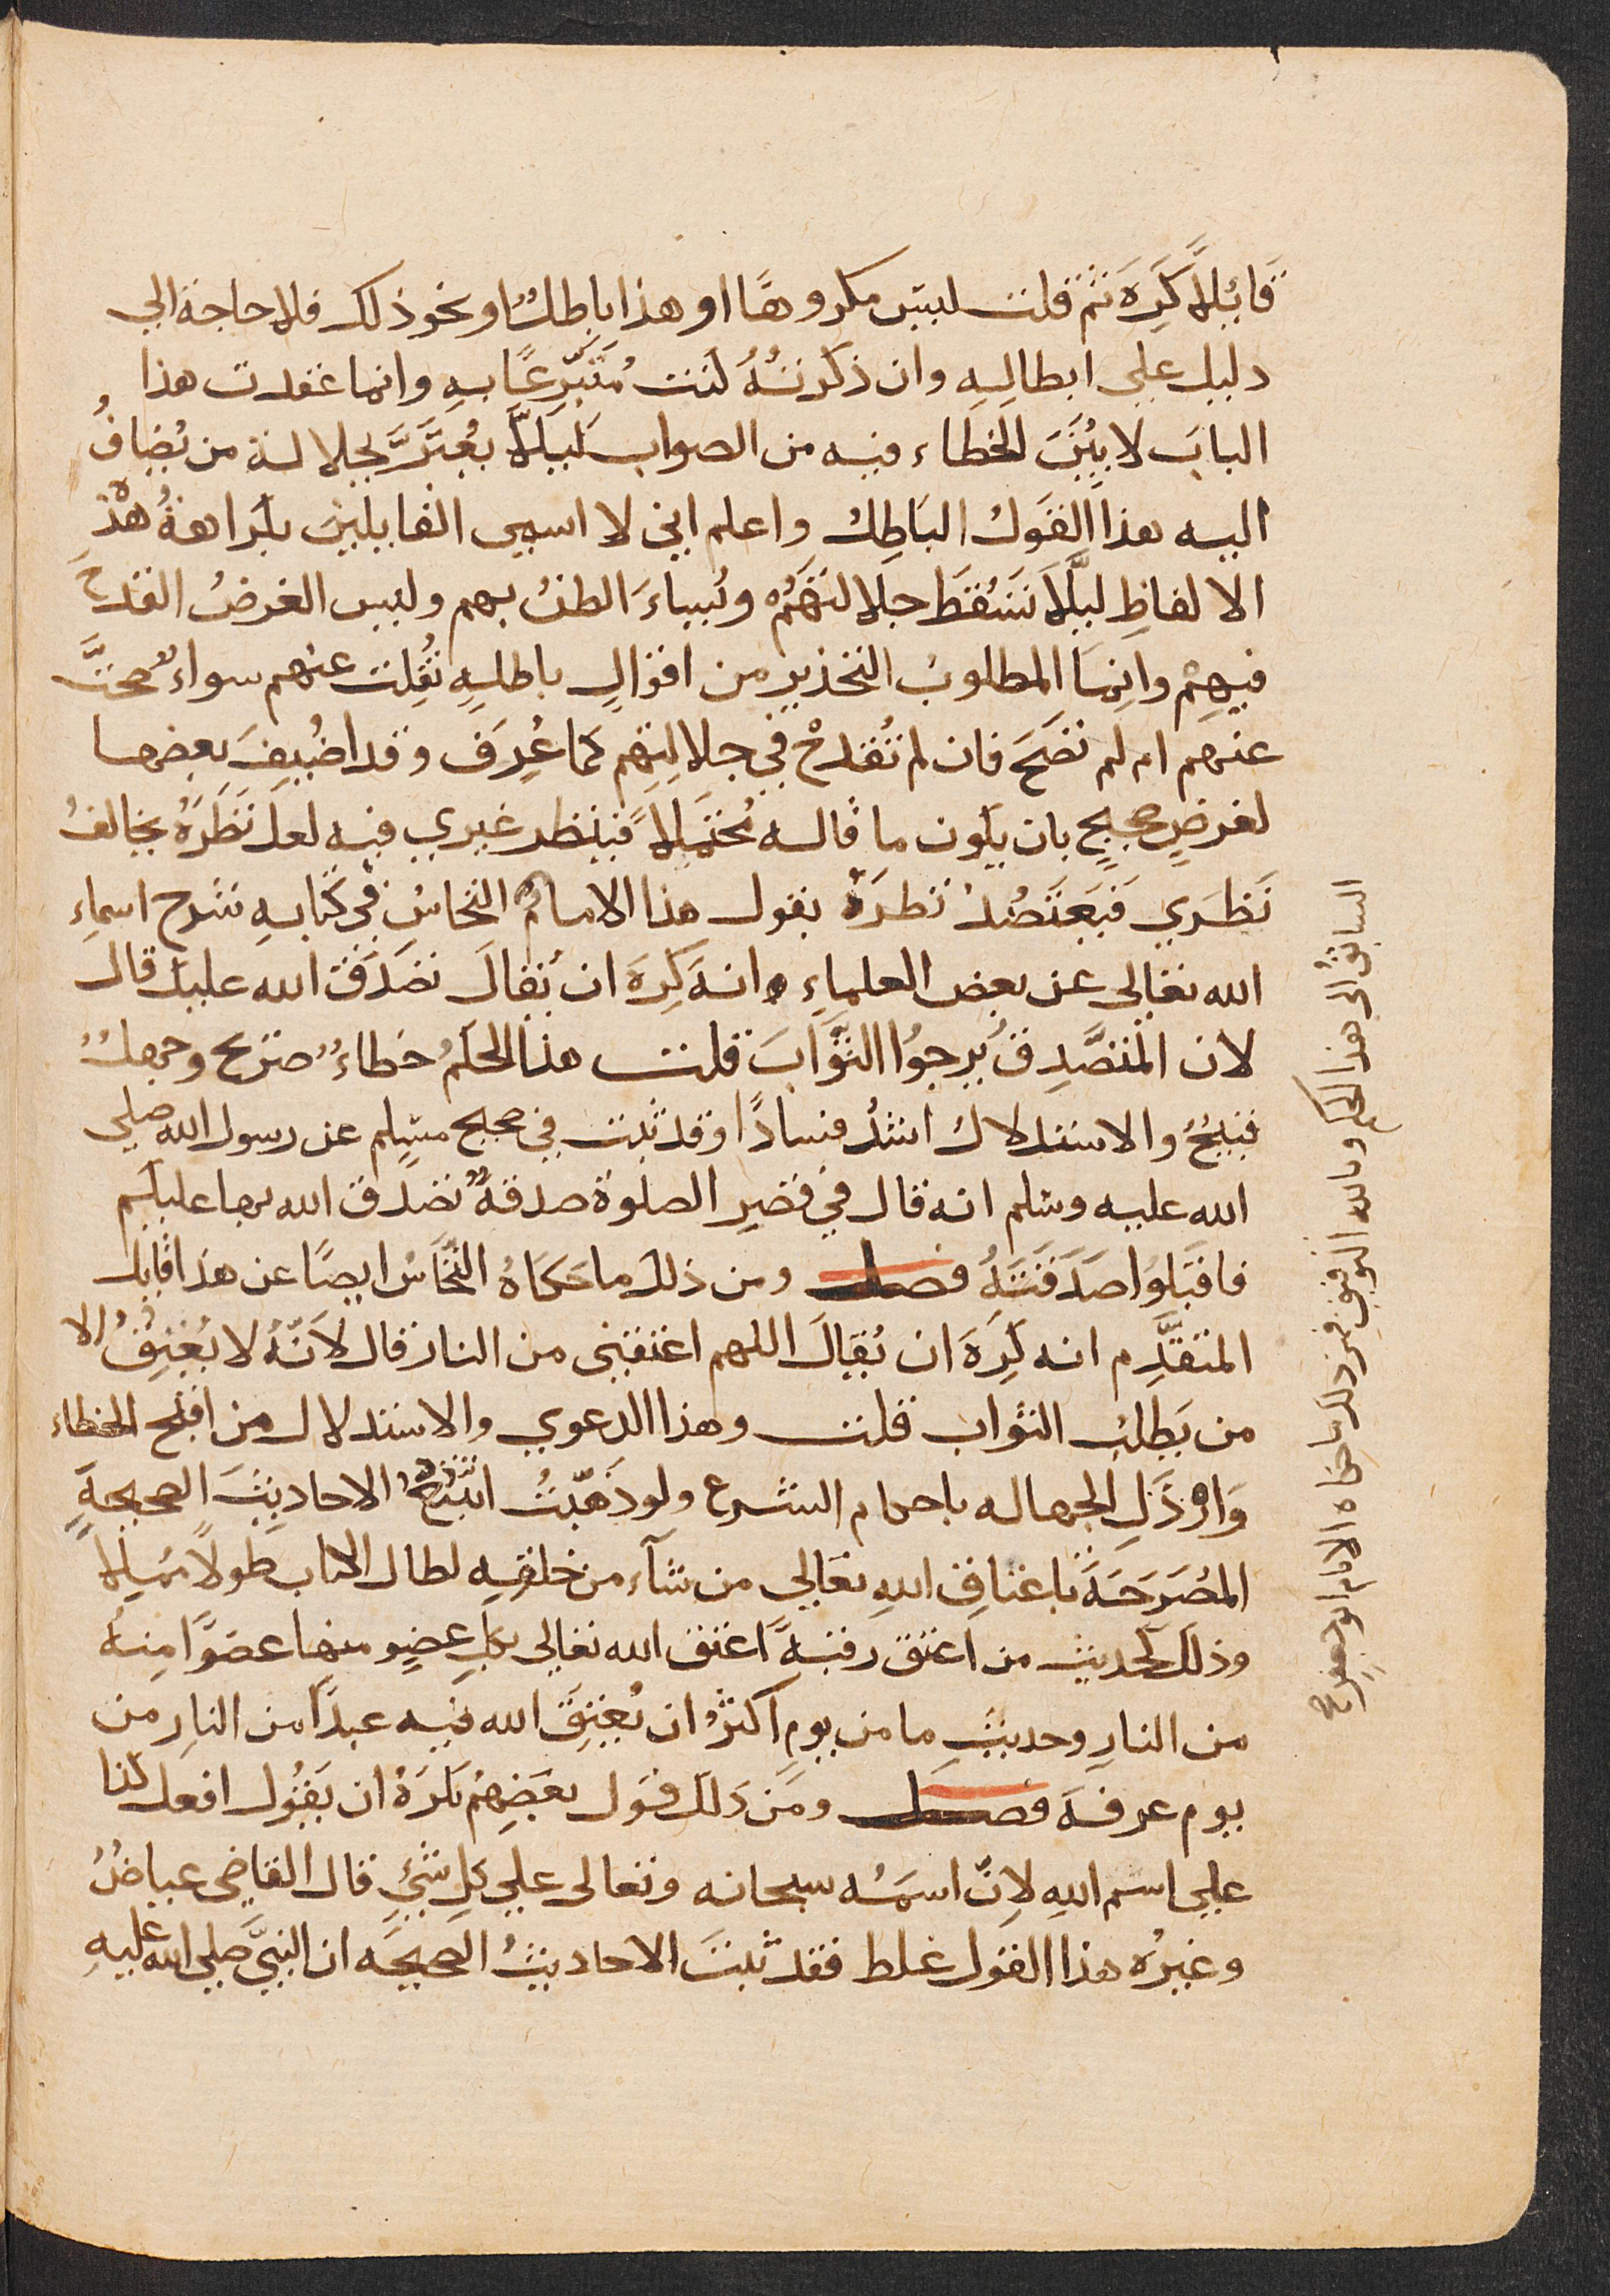 قائلا كره ثم قلت ليس مكروها او هذا باطل او نحو ذلك فلا حاجة الي
دليل علي ابطاله وان ذكرته كنت متبرعا به وانما عقدت هذا
الباب لابين الخطاء فيه من الصواب ليلا يغتر بجلالة من يضاف
اليه هذا القول الباطل واعلم اني لا اسمي القايلين بكراهة هذه
الالفاظ ليلا تسقط جلالتهم ويساء الظن بهم وليس الغرض القدح
فيهم وانما المطلوب التحذير من اقوال باطله نقلت عنهم سواء صحت
عنهم ام لم تصح فان لم تقدح في جلالتهم كما عرف وقد اضيف بعضها
لغرض صحيح بان يكون ما قاله محتملا فينظر غيري فيه لعل نظره يخالف
نظري فيعتضد نظره بقول هذا الامام النحاس في كتابه شرح اسماء
الله تعالي عن بعض العلماء وانه كره ان يقال تصدق الله عليك قال
لان المتصدق يرجوا الثواب قلت هذا الحكم خطاء صريح وجهل
قبيح والاستدلال اشد فسادا وقد ثبت في صحيح مسلم عن رسول الله صلي
الله عليه وسلم انه قال في قصر الصلوة صدقة تصدق الله بها عليكم
فاقبلوا صدقته فصل ومن ذلك ما حكاه النحاس ايضا عن هذا قايل
المتقدم انه كره ان يقال اللهم اعتقني من النار قال لانه لا يعتق الا
من يطلب الثواب قلت وهذا الدعوي والاستدلال من اقبح الخطاء
وارذل الجهاله باحكام الشرع ولو ذهبت اتتبع الاحاديث الصحيحة
المصرحة باعتاق الله تعالي من شآء من خلقه لطال الكتاب طولا مملا
وذلك كحديث من اعتق رقبة اعتق الله تعالي بكل عضو منها عضوا منه
من النار وحديث ما من يوم اكثر ان يعتق الله فيه عبدا من النار من
يوم عرفة فصل ومن ذلك قول بعضهم يكره ان يقول افعل كذا
علي اسم الله لان اسمه سبحانه وتعالي علي كل شئ قال القاضي عياض
وغيره هذا القول غلط فقد ثبتت الاحاديث الصحيحه ان النبي صلي الله عليه
السابق الي هذا الحكم وبالله التوفيق فمن ذلك ما حكاه الامام ابو جعفر